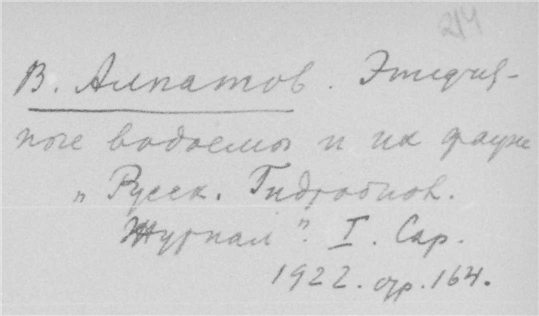 214
В. Алпатов.
ные водоемы и их фауна
„Русск. Гидробиол.
Журнал". I. Сар.
1922. стр. 164.